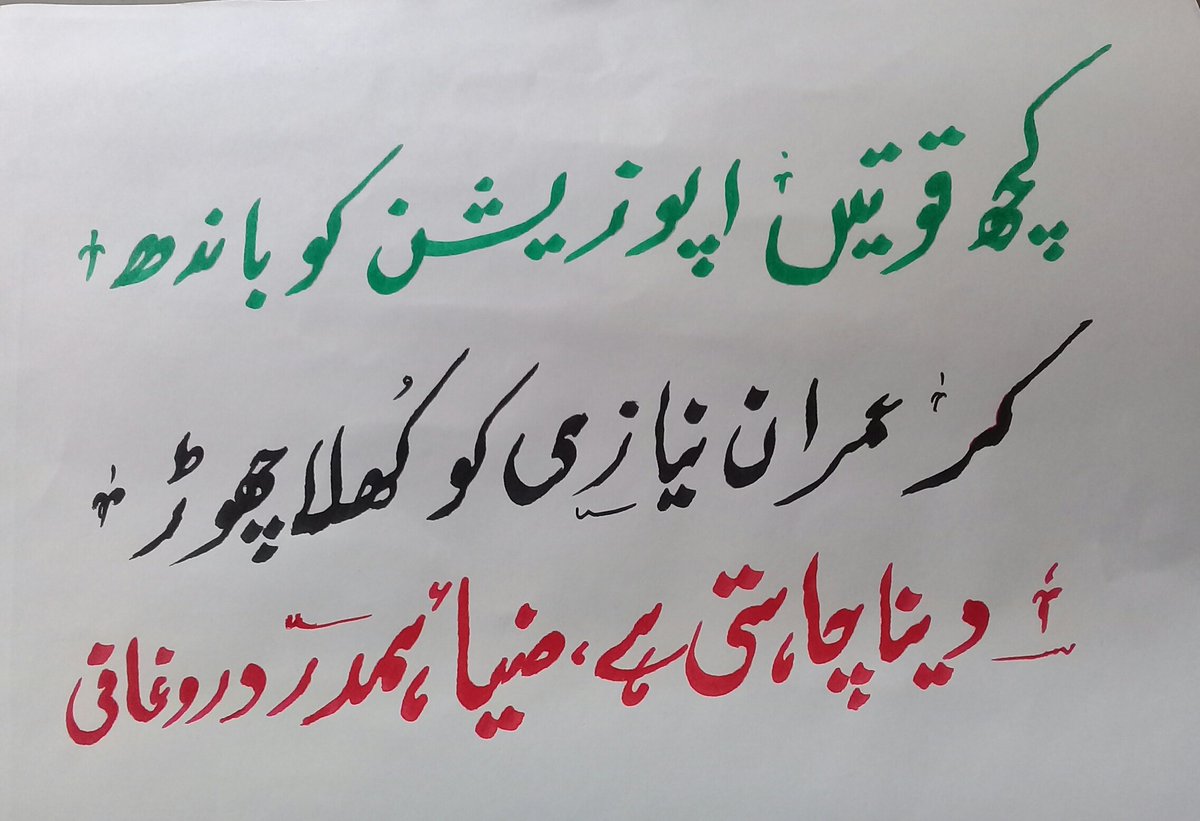 کچھ قوتیں اپوزیشن کو باندھ
کر عمران نیازی کو کُھلا چھوڑ
دینا چاہتی ہے، ضیائہمدردروغانی